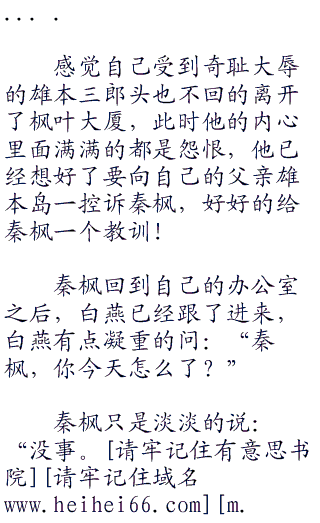 ... .
感觉自己受到奇耻大辱
的雄本三郎头也不回的离开
了枫叶大厦，此时他的内心
里面满满的都是怨恨，他已
经想好了要向自己的父亲雄
本岛一控诉秦枫，好好的给
秦枫一个教训！
秦枫回到自己的办公室
之后，白燕已经跟了进来，
白燕有点凝重的问：“秦
枫，你今天怎么了？”
秦枫只是淡淡的说：
“没事。[请牢记住有意思书
院][请牢记住域名
www.heihei66.com][m.